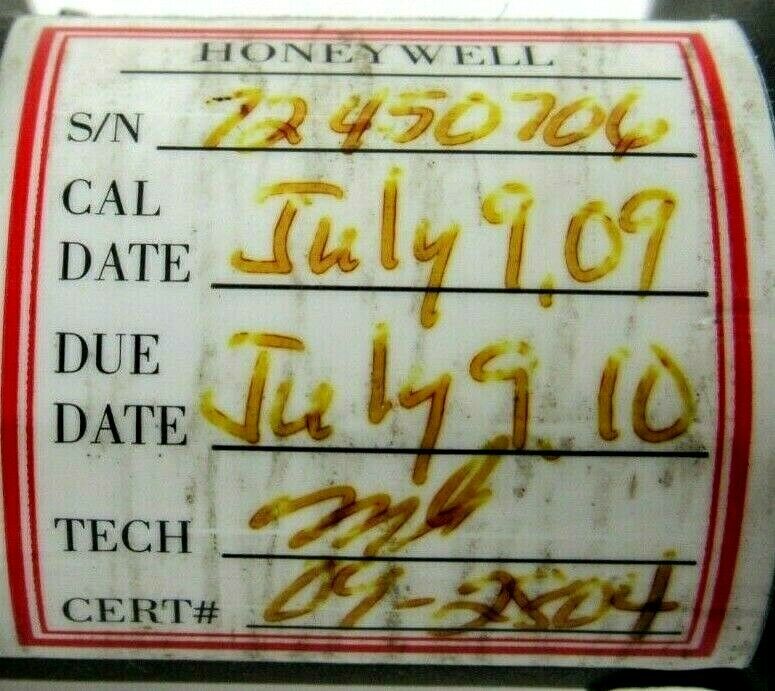 HONEYWELL
S/N 72450706
CAL
DATE July 9, 09
DUE
DATE July 9, 10
TECH
CERT# 09-2504